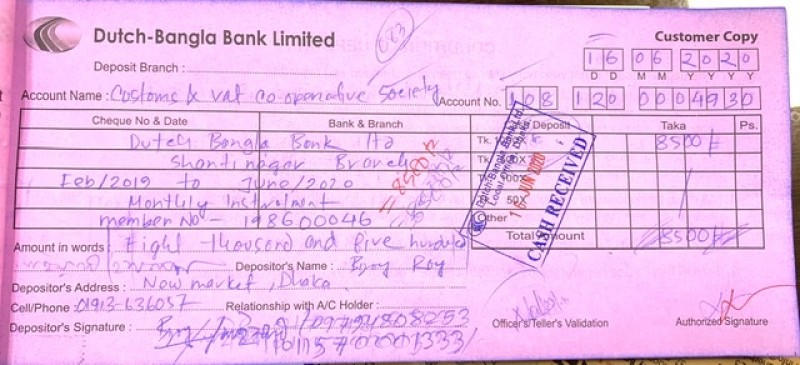 Dutch-Bangla Bank Limited
683
Customer Copy
Deposit Branch :
16 06 2020
D D M M Y Y Y Y
Account Name : Customs & vat co-operative Society Account No. 108 120 0004930
Cheque No & Date Bank & Branch Deposit Taka Ps.
Dutch Bangla Bank ltd Tk. 8500/=
Shantinagar Branch Tk.
Feb/2019 to June/2020 Tk. 100X
Monthly Instalment 50X
member No - 198600046 Other
Dutch-Bangla Bank Ltd.
Local Office, Dhaka.
16 JUN 2020
CASH RECEIVED
Amount in words : Eight thousand and five hundred Total Amount 8500/=
Depositor's Name : Bijoy Roy
Depositor's Address : New market, Dhaka
Cell/Phone : 01913-636057 Relationship with A/C Holder :
Depositor's Signature : Officer's/Teller's Validation Authorized Signature